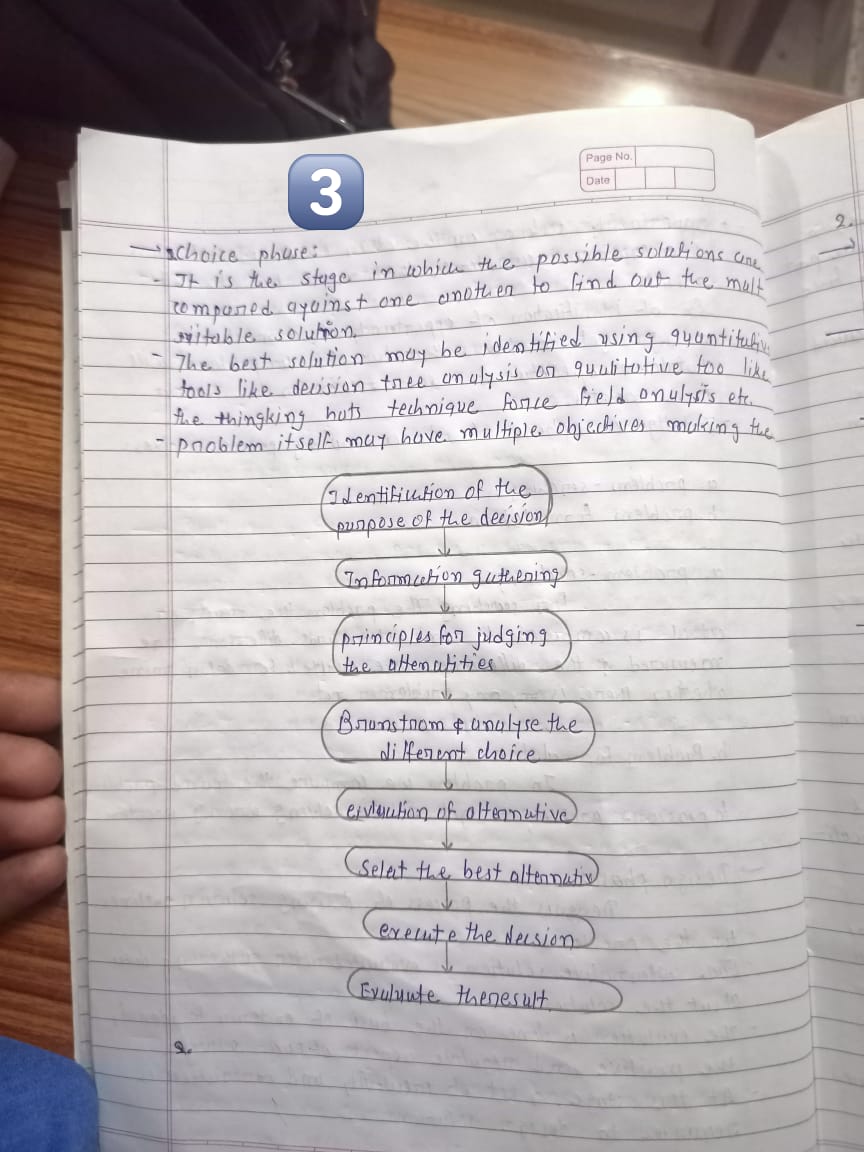 3
Page No.
Date
2.
→ choice phase:
- It is the stage in which the possible solutions are
compared against one another to find out the
suitable solution.
- The best solution may be identified using quantitative
tools like decision tree analysis or qualitative too like
the thingking hats technique force field analysis etc.
- problem itself may have multiple objectives making the
Identification of the
purpose of the decision
Information gathering
principles for judging
the
& analyse the
different choice
of alternative
Select the best alternativ
execute the decsion
Evaluate the result
2.